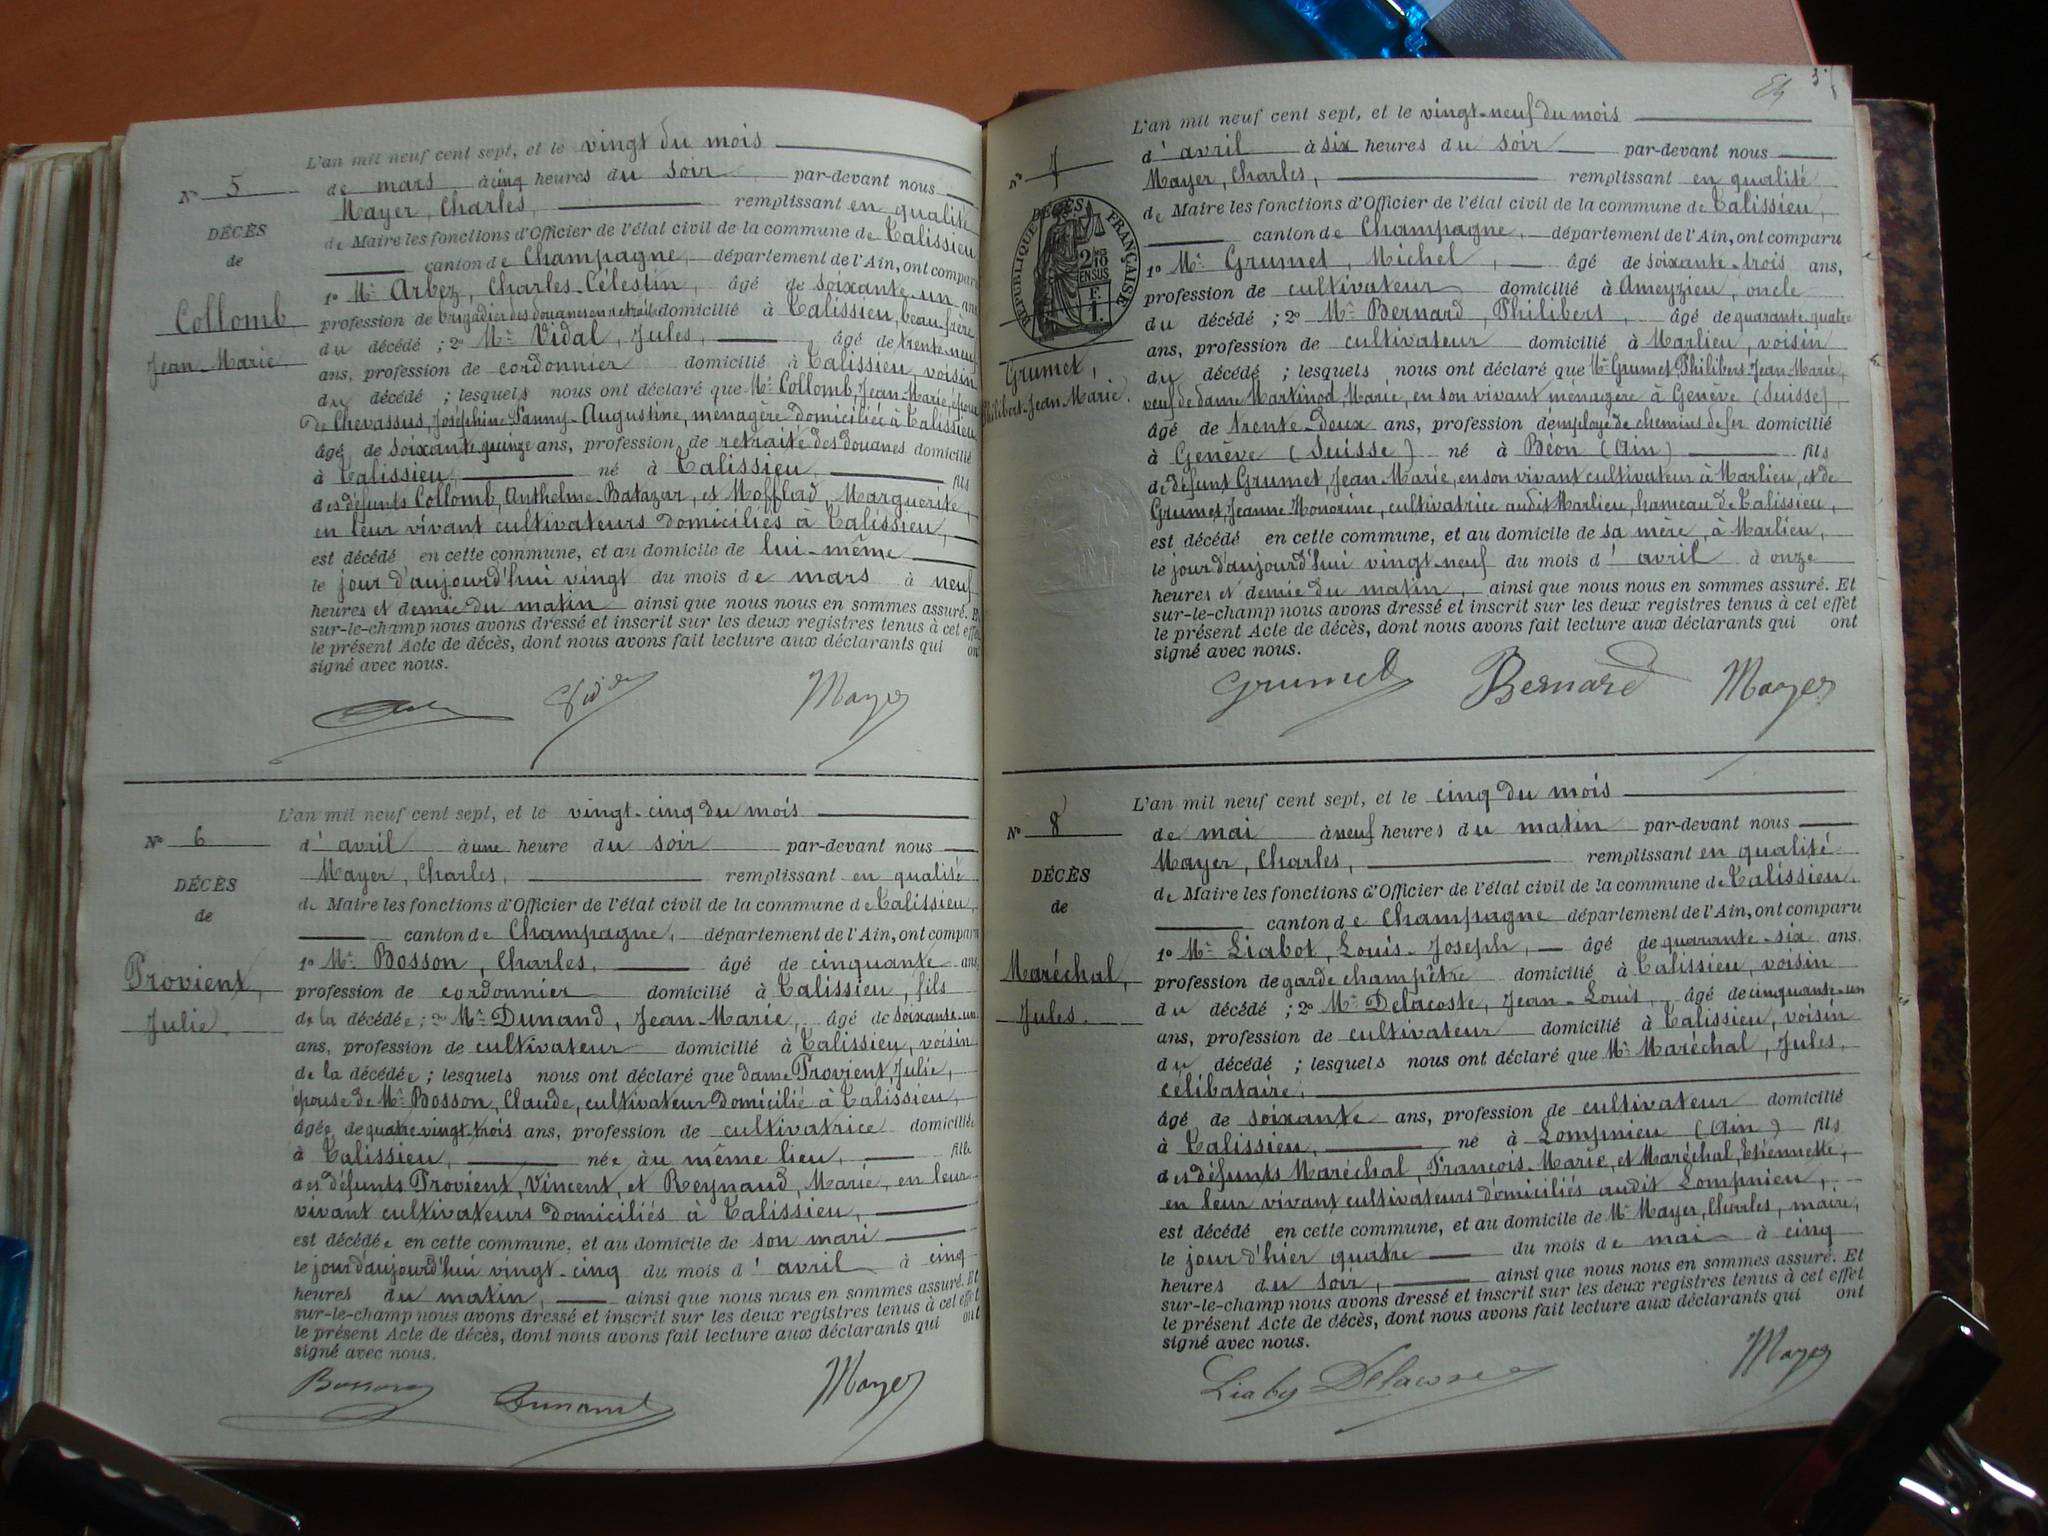 L'an mil neuf cent sept, et le vingt du mois
N° 5
de mars à cinq heures du soir par-devant nous
Mayer, Charles, remplissant en qualité
DÉCÈS
de Maire les fonctions d'Officier de l'état civil de la commune de Talissieu
de
canton de Champagne, département de l'Ain, ont comparu
1° Mr Arbez, Charles-Célestin, âgé de soixante-un ans
Collomb
profession de brigadier des douanes en retraite domicilié à Talissieu, beau-frère
du décédé ; 2° Mr Vidal, Jules, âgé de trente-neuf
Jean-Marie
ans, profession de cordonnier domicilié à Talissieu, voisin
du décédé ; lesquels nous ont déclaré que Mr Collomb, Jean-Marie, époux
de Chevassus, Joséphine-Fanny-Augustine, ménagère domiciliée à Talissieu
âgé de soixante-quinze ans, profession de retraité des douanes domicilié
à Talissieu, né à Talissieu, fils
des défunts Collomb, Anthelme-Batazar, et Moffrad, Marguerite,
en leur vivant cultivateurs domiciliés à Talissieu,
est décédé en cette commune, et au domicile de lui-même
le jour d'aujourd'hui vingt du mois de mars à neuf
heures et demie du matin ainsi que nous nous en sommes assuré. Et
sur-le-champ nous avons dressé et inscrit sur les deux registres tenus à cet effet
le présent Acte de décès, dont nous avons fait lecture aux déclarants qui ont
signé avec nous.
Mayer
L'an mil neuf cent sept, et le vingt-cinq du mois
N° 6
d'avril à une heure du soir par-devant nous
Mayer, Charles, remplissant en qualité
DÉCÈS
de Maire les fonctions d'Officier de l'état civil de la commune de Talissieu,
de
canton de Champagne, département de l'Ain, ont comparu
1° Mr Bosson, Charles, âgé de cinquante ans
Provient,
profession de cordonnier domicilié à Talissieu, fils
Julie.
de la décédée ; 2° Mr Dunand, Jean-Marie, âgé de soixante-un
ans, profession de cultivateur domicilié à Talissieu, voisin
de la décédée ; lesquels nous ont déclaré que dame Provient, Julie,
épouse de Mr Bosson, Claude, cultivateur domicilié à Talissieu,
âgée de quatre-vingt-trois ans, profession de cultivatrice domiciliée
à Talissieu, née au même lieu, fille
des défunts Provient, Vincent, et Reynaud, Marie, en leur
vivant cultivateurs domiciliés à Talissieu,
est décédée en cette commune, et au domicile de son mari
le jour d'aujourd'hui vingt-cinq du mois d'avril à cinq
heures du matin, ainsi que nous nous en sommes assuré. Et
sur-le-champ nous avons dressé et inscrit sur les deux registres tenus à cet effet
le présent Acte de décès, dont nous avons fait lecture aux déclarants qui ont
signé avec nous.
Bosson Dunand Mayer
L'an mil neuf cent sept, et le vingt-neuf du mois
N° 7
d'avril à six heures du soir par-devant nous
Mayer, Charles, remplissant en qualité
DÉCÈS
RÉPUBLIQUE FRANÇAISE
2/10 EN SUS
F. 1.
de Maire les fonctions d'Officier de l'état civil de la commune de Talissieu,
canton de Champagne, département de l'Ain, ont comparu
1° Mr Grumet, Michel, âgé de soixante-trois ans,
profession de cultivateur domicilié à Ameyzieu, oncle
du décédé ; 2° Mr Bernard, Philibert, âgé de quarante quatre
ans, profession de cultivateur domicilié à Marlieu, voisin
Grumet,
du décédé ; lesquels nous ont déclaré que Mr Grumet Philibert Jean Marie,
Philibert-Jean Marie.
veuf de dame Martinod, Marie, en son vivant ménagère à Genève (Suisse),
âgé de trente-deux ans, profession d'employé de chemins de fer domicilié
à Genève (Suisse) né à Béon (Ain) fils
de défunt Grumet, Jean Marie, en son vivant cultivateur à Marlieu, et de
Grumet, Jeanne Honorine, cultivatrice audit Marlieu, hameau de Talissieu,
est décédé en cette commune, et au domicile de sa mère, à Marlieu,
le jour d'aujourd'hui vingt-neuf du mois d'avril à onze
heures et demie du matin, ainsi que nous nous en sommes assuré. Et
sur-le-champ nous avons dressé et inscrit sur les deux registres tenus à cet effet
le présent Acte de décès, dont nous avons fait lecture aux déclarants qui ont
signé avec nous.
Grumet Bernard Mayer
L'an mil neuf cent sept, et le cinq du mois
N° 8
de mai à neuf heures du matin par-devant nous
Mayer, Charles, remplissant en qualité
DÉCÈS
de Maire les fonctions d'Officier de l'état civil de la commune de Talissieu.
de
canton de Champagne département de l'Ain, ont comparu
1° Mr Liabot, Louis-Joseph, âgé de quarante-six ans.
Maréchal,
profession de garde champêtre domicilié à Talissieu, voisin
Jules.
du décédé ; 2° Mr Delacoste, Jean-Louis, âgé de cinquante-un
ans, profession de cultivateur domicilié à Talissieu, voisin
du décédé ; lesquels nous ont déclaré que Mr Maréchal, Jules,
célibataire,
âgé de soixante ans, profession de cultivateur domicilié
à Talissieu, né à Lompnieu (Ain) fils
des défunts Maréchal, François-Marie, et Maréchal, Etiennette,
en leur vivant cultivateurs domiciliés audit Lompnieu,
est décédé en cette commune, et au domicile de Mr Mayer, Charles, maire,
le jour d'hier quatre du mois de mai à cinq
heures du soir, ainsi que nous nous en sommes assuré. Et
sur-le-champ nous avons dressé et inscrit sur les deux registres tenus à cet effet
le présent Acte de décès, dont nous avons fait lecture aux déclarants qui ont
signé avec nous.
Mayer